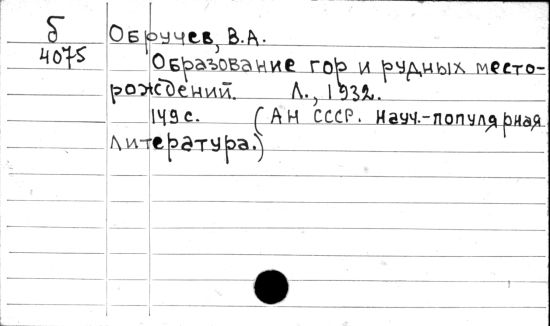 Б
4075
Обручев, В.А.
Образование гор и рудных место-
рождений. Л., 1932.
149 с. (АН СССР. Науч.-популярная
литература.)